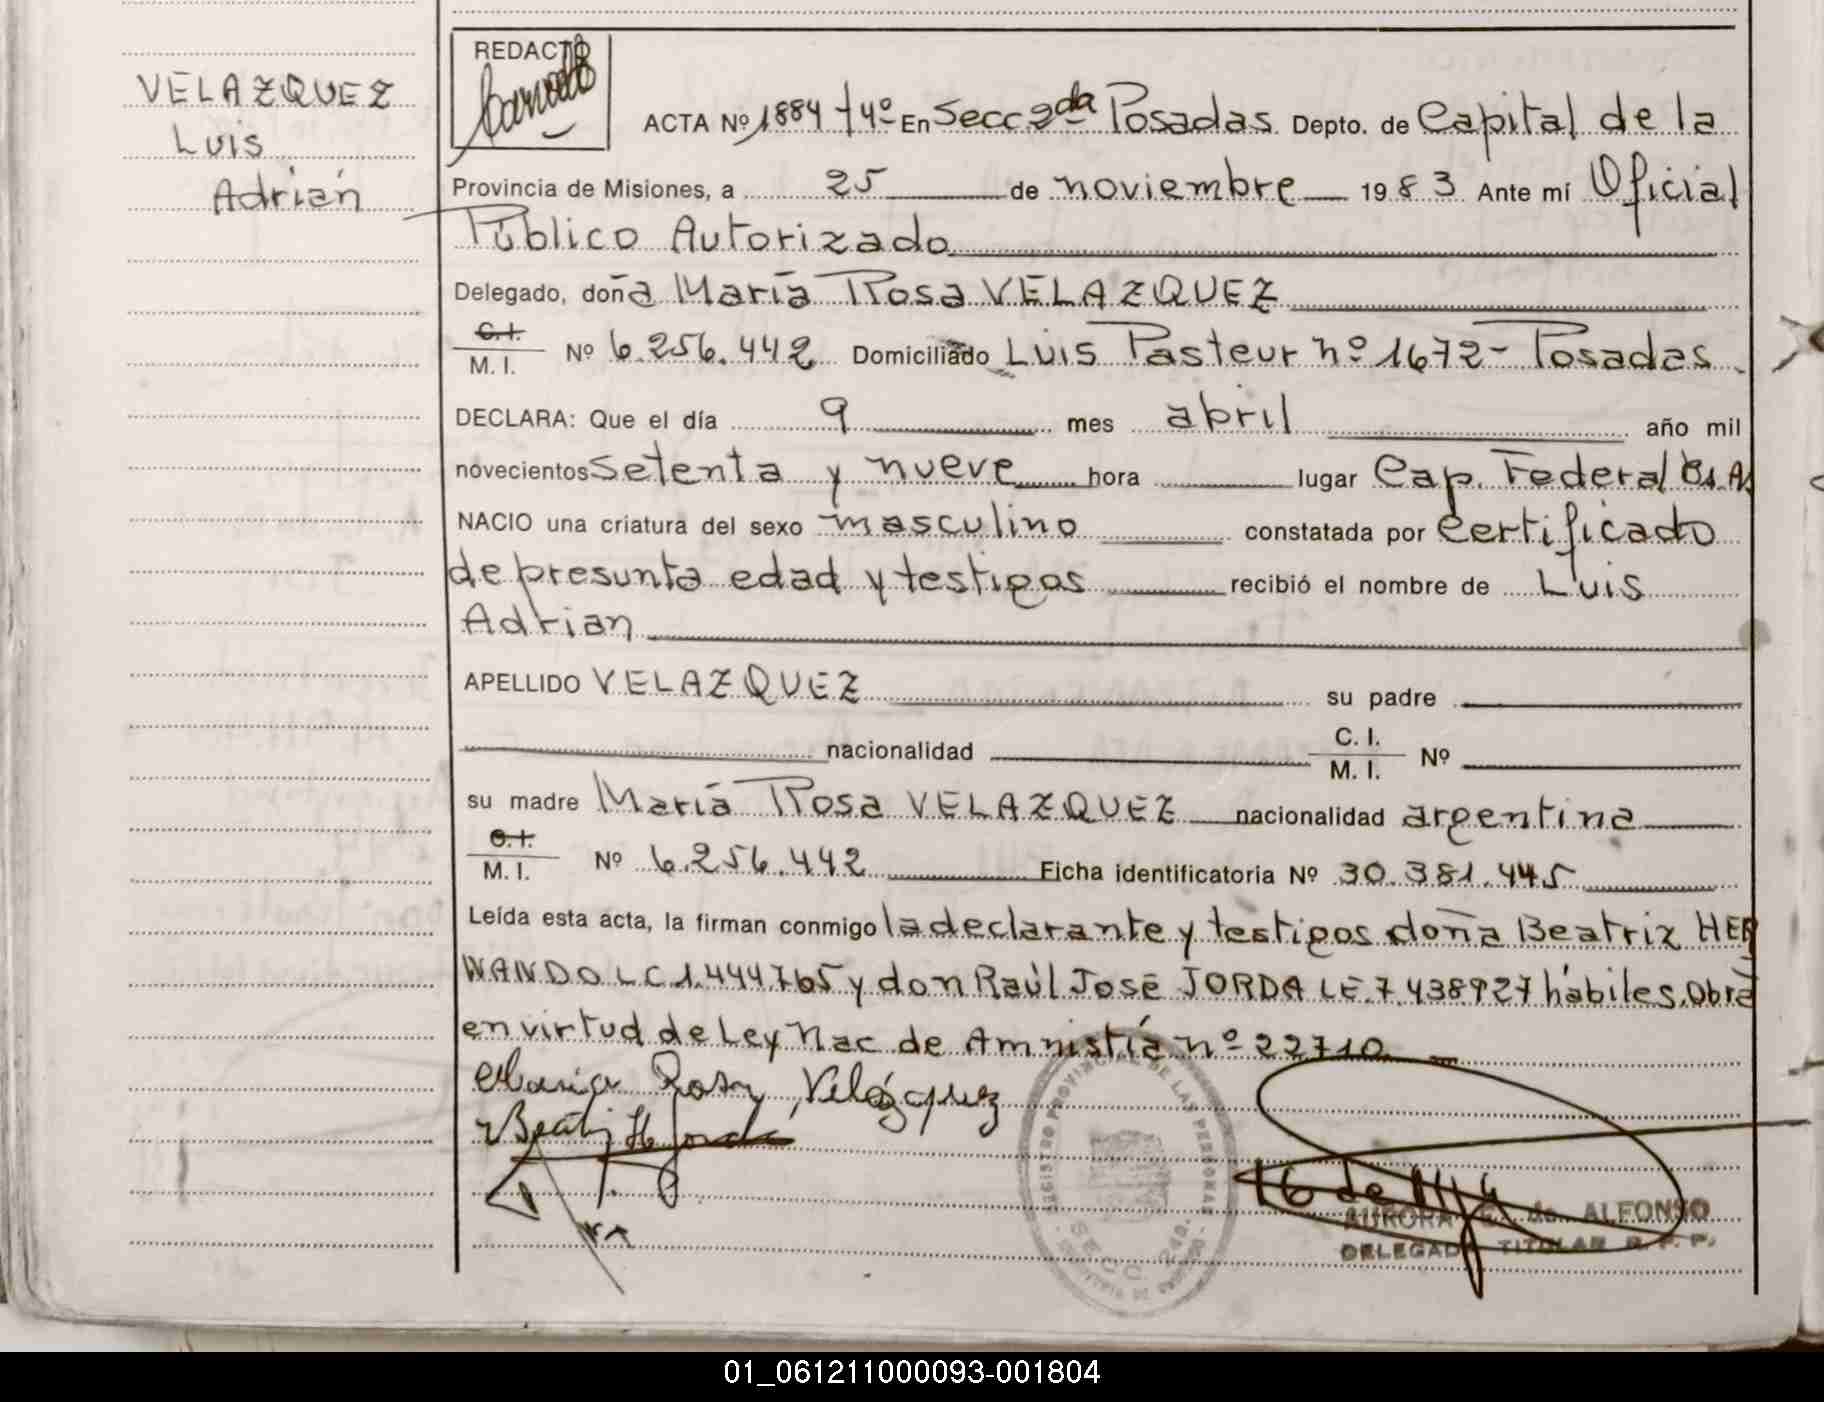 REDACTÓ
VELAZQUEZ
Luis
Adrián
ACTA Nº 1884 t 4º En Secc 2da Posadas Depto. de Capital de la
Provincia de Misiones, a 25 de noviembre 1983 Ante mí Oficial
Público Autorizado
Delegado, doña María Rosa VELAZQUEZ
C.I.
M. I. Nº 6.256.442 Domiciliado Luis Pasteur nº 1672 - Posadas
DECLARA: Que el día 9 mes abril año mil
novecientos setenta y nueve hora lugar Cap. Federal Bs. As
NACIO una criatura del sexo masculino constatada por certificado
de presunta edad y testigos recibió el nombre de Luis
Adrian
APELLIDO VELAZQUEZ su padre
nacionalidad C. I.
M. I. Nº
su madre María Rosa VELAZQUEZ nacionalidad argentina
C.I.
M. I. Nº 6.256.442 Ficha identificatoria Nº 30.381.445
Leída esta acta, la firman conmigo la declarante y testigos doña Beatriz HER
NANDO LC 1.444.765 y don Raúl José JORDA LE.7.438927 hábiles. Obra
en virtud de Ley Nac de Amnistía nº 22710
Maria Rosa Velázquez
Beatriz H. Jorda
REGISTRO PROVINCIAL DE LAS PERSONAS
SECC. 2da.
AURORA de ALFONSO
DELEGADA TITULAR R. P. P.
01_061211000093-001804